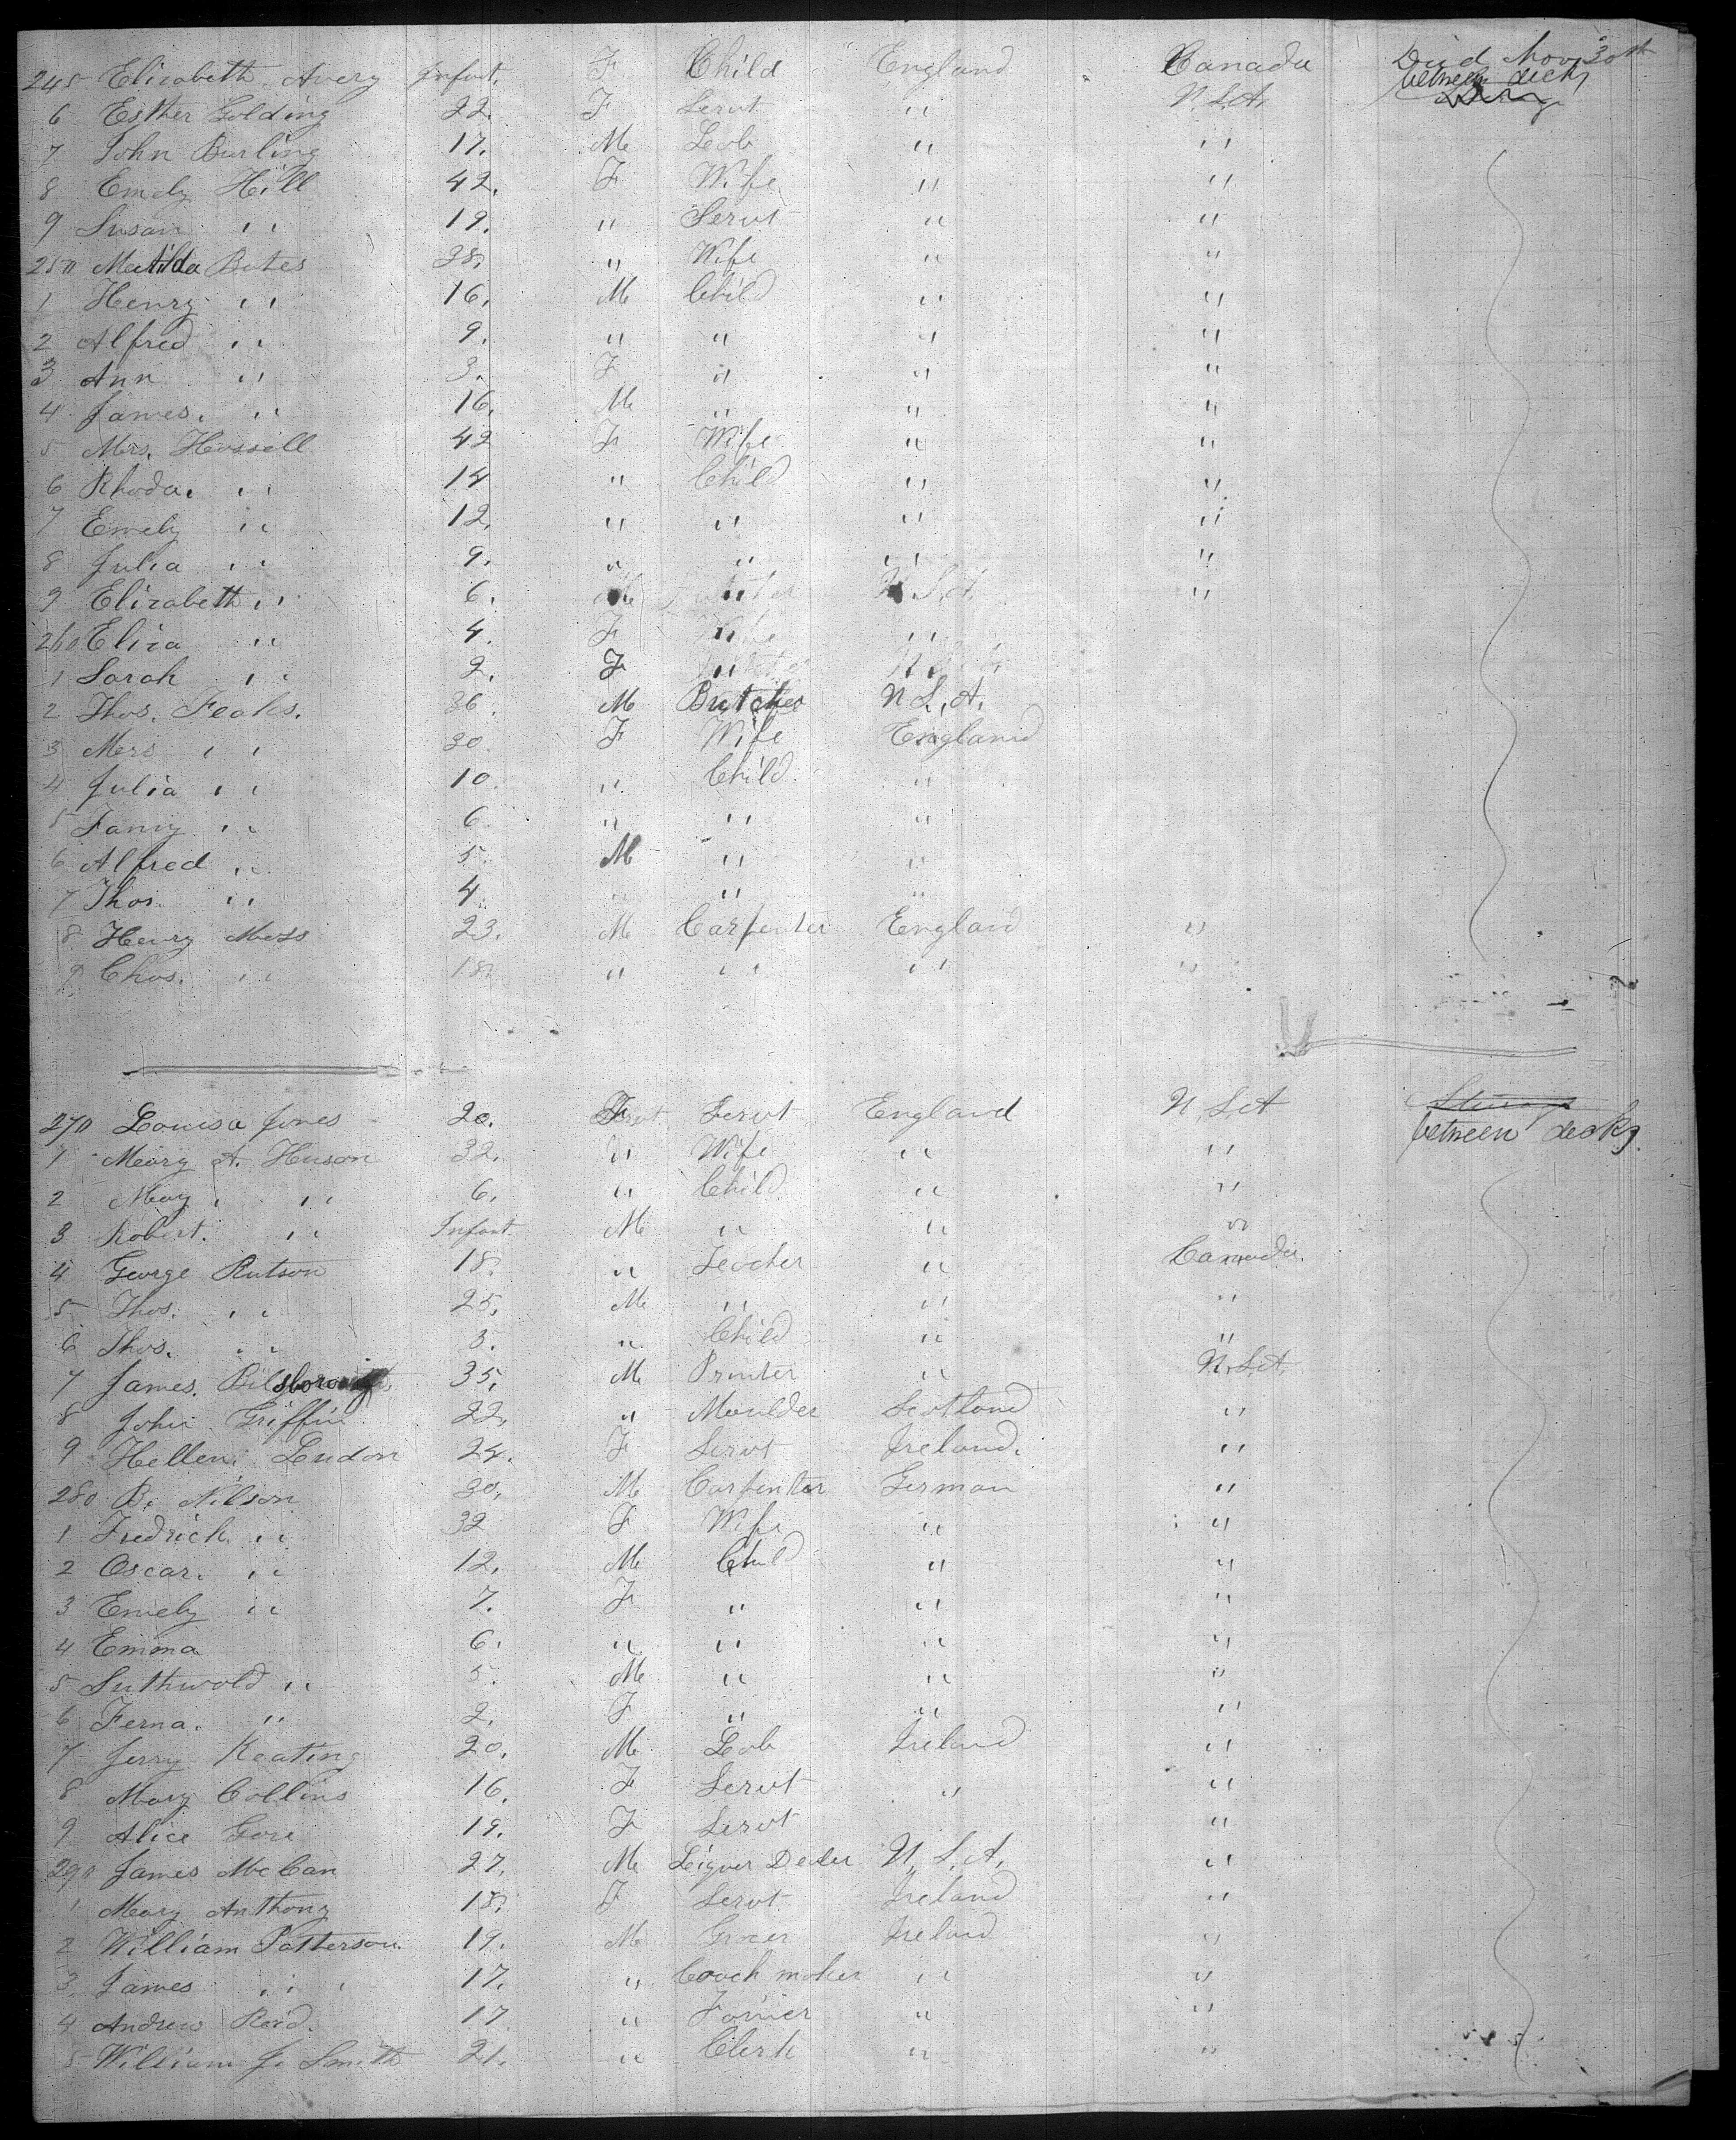 245 Elizabeth Avery Infant. F Child England Canada Died Nov 30th
between decks
6 Esther Golding 22. F Servt " U.S.A.
7 John Burling 17. M Lab " "
8 Emely Hill 42. F Wife " "
9 Susan " 19. " Servt " "
250 Matilda Bates 38. " Wife " "
1 Henry " 16. M Child " "
2 Alfred " 9. " " " "
3 Ann " 3. F " " "
4 James. " 16. M " " "
5 Mrs. Hossell 42 F Wife " "
6 Rhoda. " 14 " Child " "
7 Emely " 12. " " " "
8 Julia " 9. " " " "
9 Elizabeth " 6. " U.S.A. "
260 Eliza " 4. F " "
1 Sarah " 2. F "
2 Thos. Feaks. 36. M Butcher U.S.A.
3 Mers " 30. F Wife England
4 Julia " 10. " Child "
5 Fanny " 6. " " "
6 Alfred " 5. M " "
7 Thos. " 4. " " "
8 Henry Moss 23. M Carpenter England "
9 Chas. " 18. " " " "
270 Louisa Jones 20. F Servt England U.S.A
between decks.
1 Mary A. Huson 32. " Wife " "
2 May. " 6. " Child " "
3 Robert. " Infant M " " "
4 George Rutson 18. " " Canada.
5 Thos. " 25. M " " "
6 Thos. " 3. " Child " "
7 James. 35. M Printer " U.S.A.
8 John Griffin 22. " Moulder Scotland "
9 Hellen. Lendon 24. F Servt Ireland. "
280 B. Nilson 30. M Carpenter German "
1 Fredrich. " 32 F Wife " "
2 Oscar. " 12. M Child " "
3 Emely " 7. F " " "
4 Emma 6. " " " "
5 Suthwold " 5. M " " "
6 Ferna. " 2. F " " "
7 Jerry Keating 20. M Lab Ireland "
8 Mary Collins 16. F Servt " "
9 Alice Gore 19. F Servt "
290 James McCan 27. M Liquer Dealer U.S.A. "
1 Mary Anthony 18. F Servt Ireland "
2 William Patterson. 19. M Grocer Ireland "
3. James " 17. " Coach maker " "
4 Andrew Reid. 17. " Farrier " "
5 William J. Smith 21. " Clerk " "